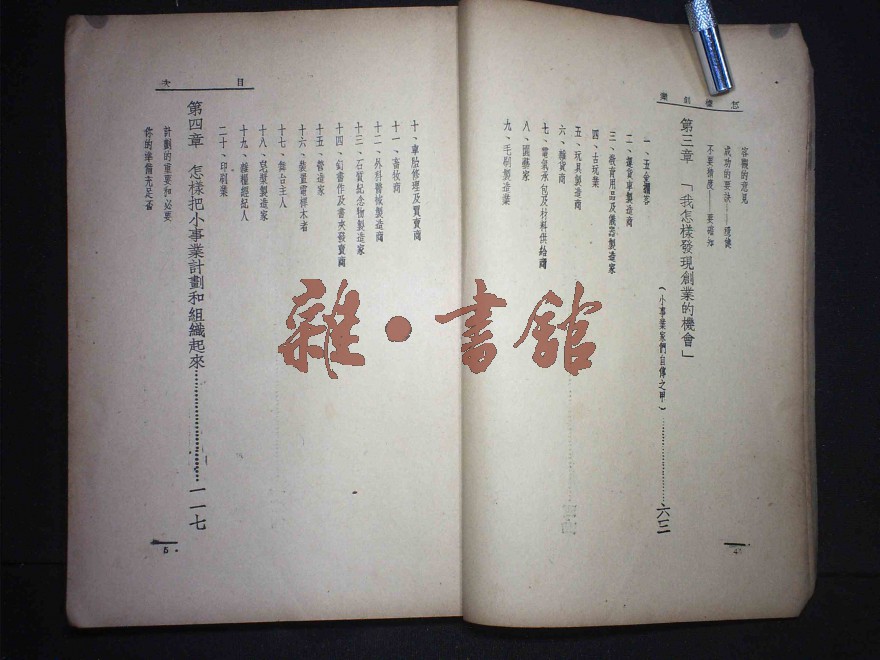 怎樣創業
客觀的意見
成功的要訣——穩健
不要猜度——要確知
第三章　「我怎樣發現創業的機會」
（小事業家們自傳之甲）……六三
二、運貨車製造商
三、教育用品及儀器製造家
四、古玩業
五、玩具製造商
六、雜貨商
七、電氣承包及材料供給商
八、園藝家
九、毛刷製造業
4
目次
十、車胎修理及買賣商
十一、畜牧商
十二、外科醫械製造商
十三、石質紀念物製造家
十四、幻書作及書夾發賣商
十五、營造家
十六、裝置電桿木者
十七、舞台主人
十八、皂型製造家
十九、雜糧經紀人
二十、印刷業
第四章　怎樣把小事業計劃和組織起來……一一七
計劃的重要和必要
你的準備充足否
5
雜·書館